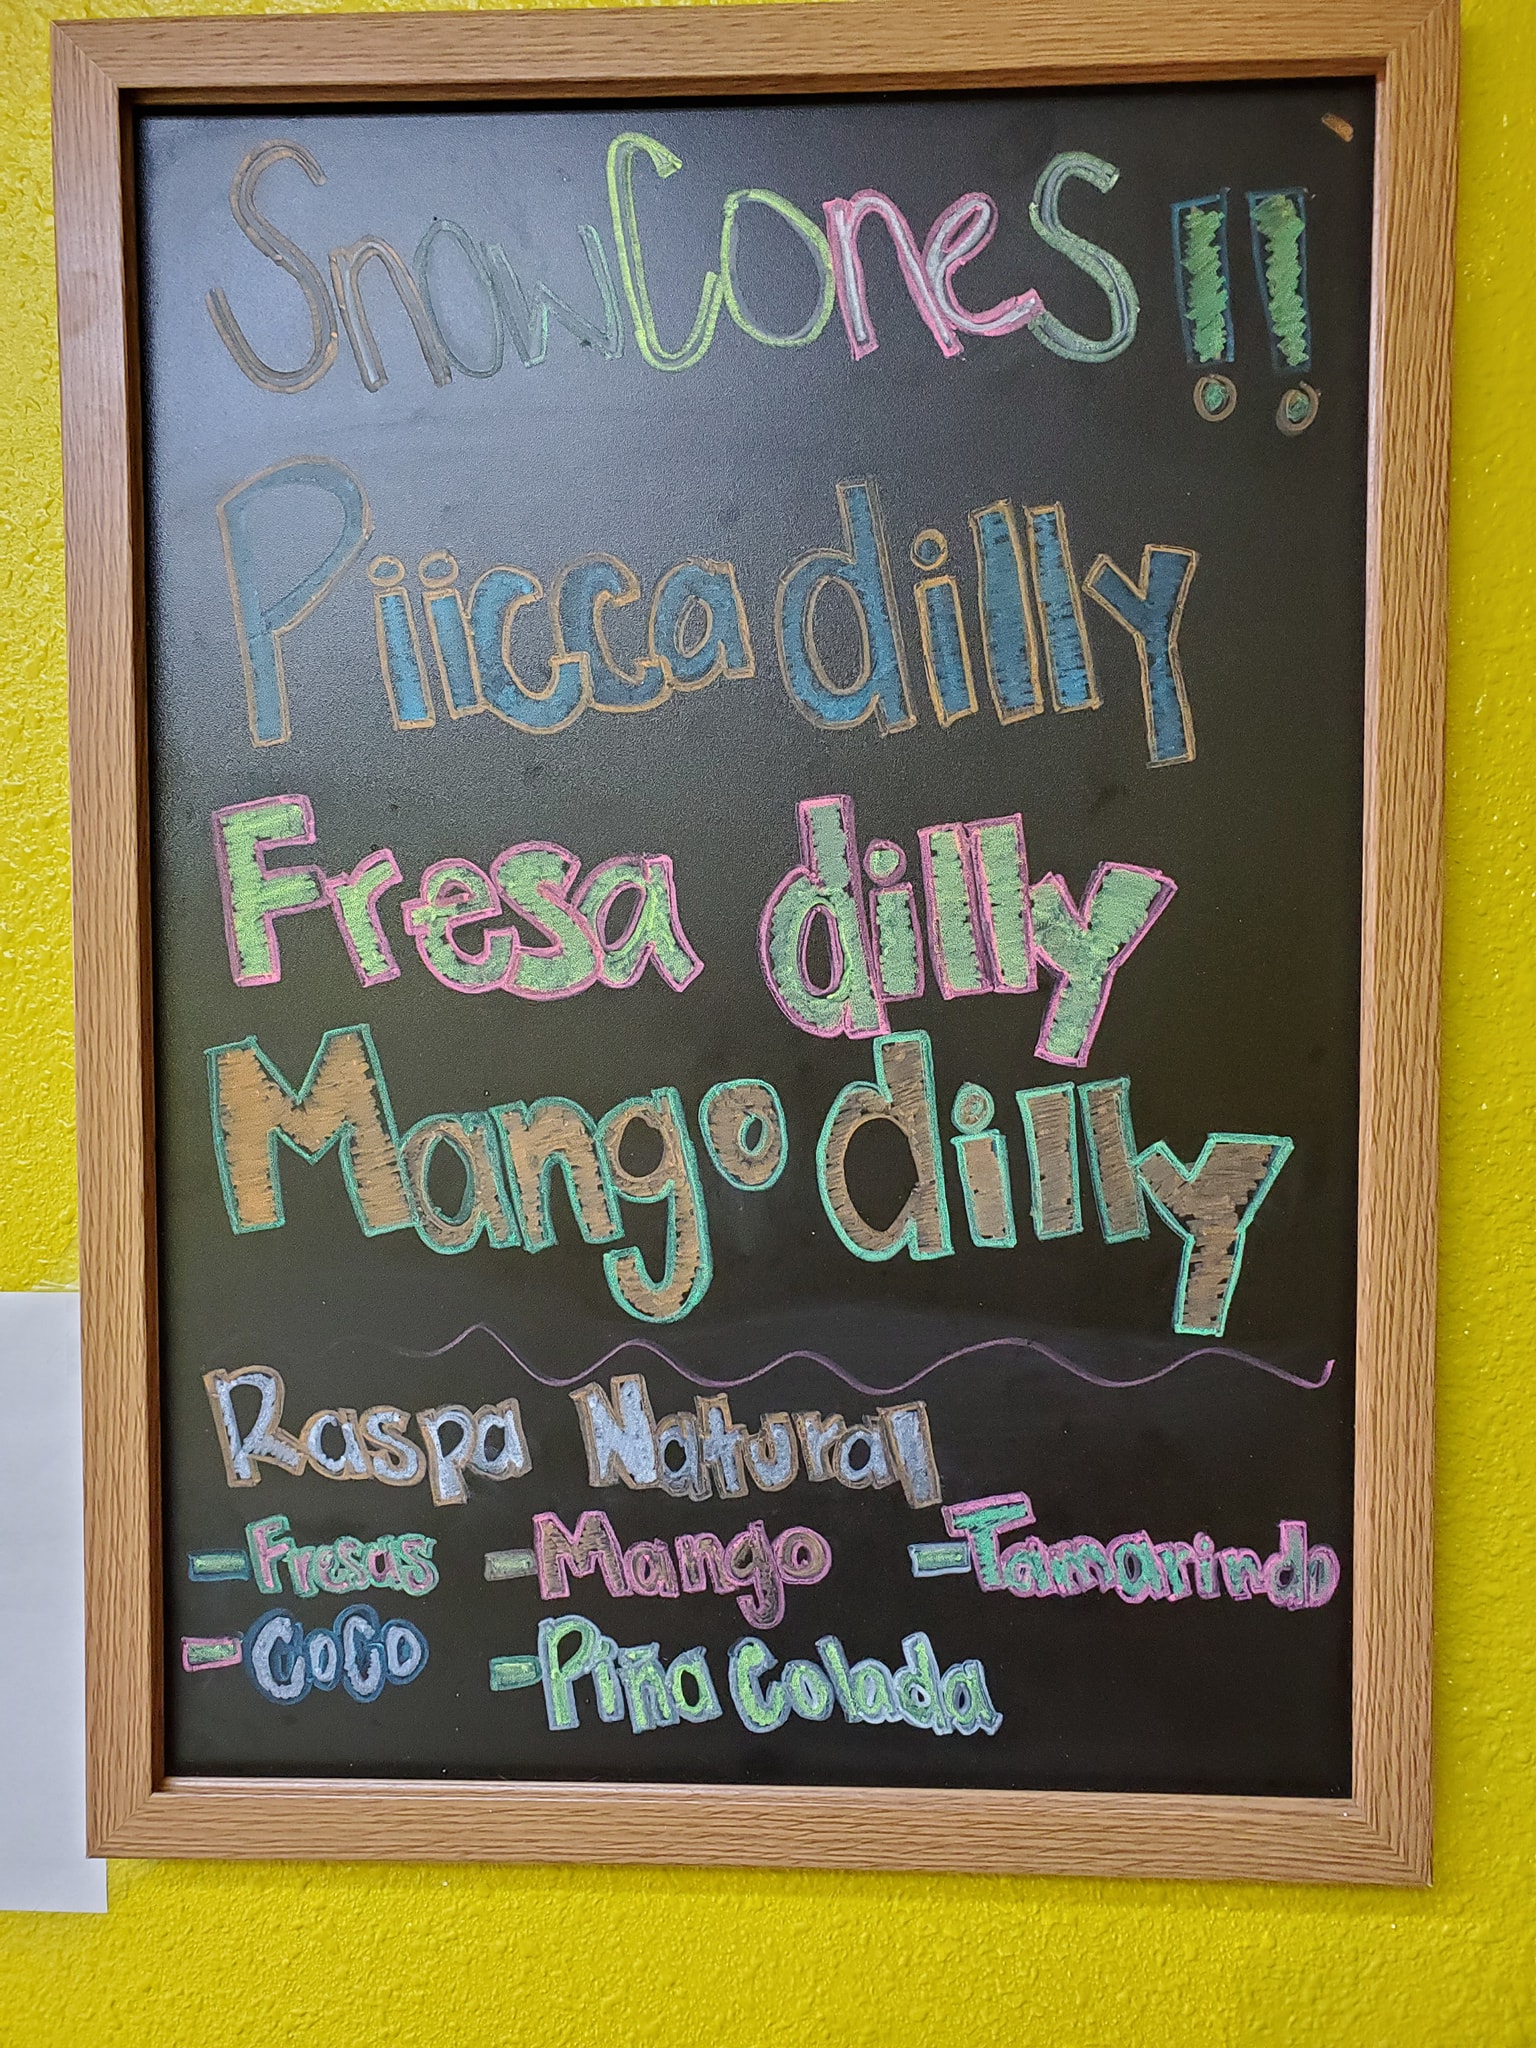 SnowCones!!
Piiccadilly
Fresa dilly
Mango dilly
Raspa Natural
-Fresas -Mango -Tamarindo
-CoCo -Piña Colada